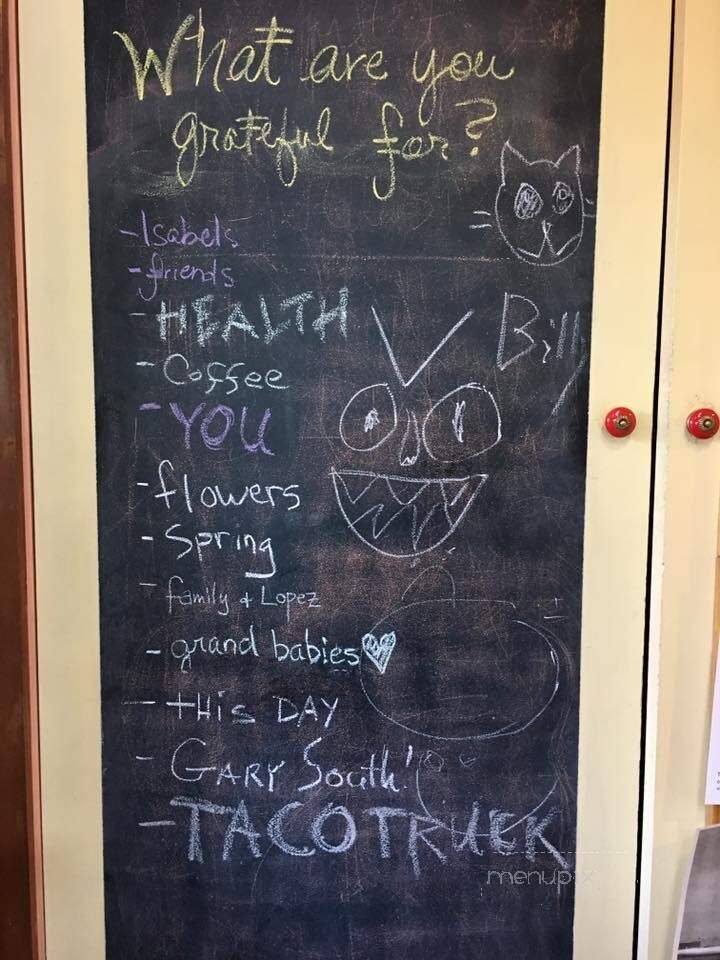 What are you
grateful for?
-Isabels
-friends
-HEALTH
Billy
-Coffee
-YOU
-flowers
-Spring
-family & Lopez
-grand babies
-tHis DAY
-GARY South!
-TACOTRUCK
menupix